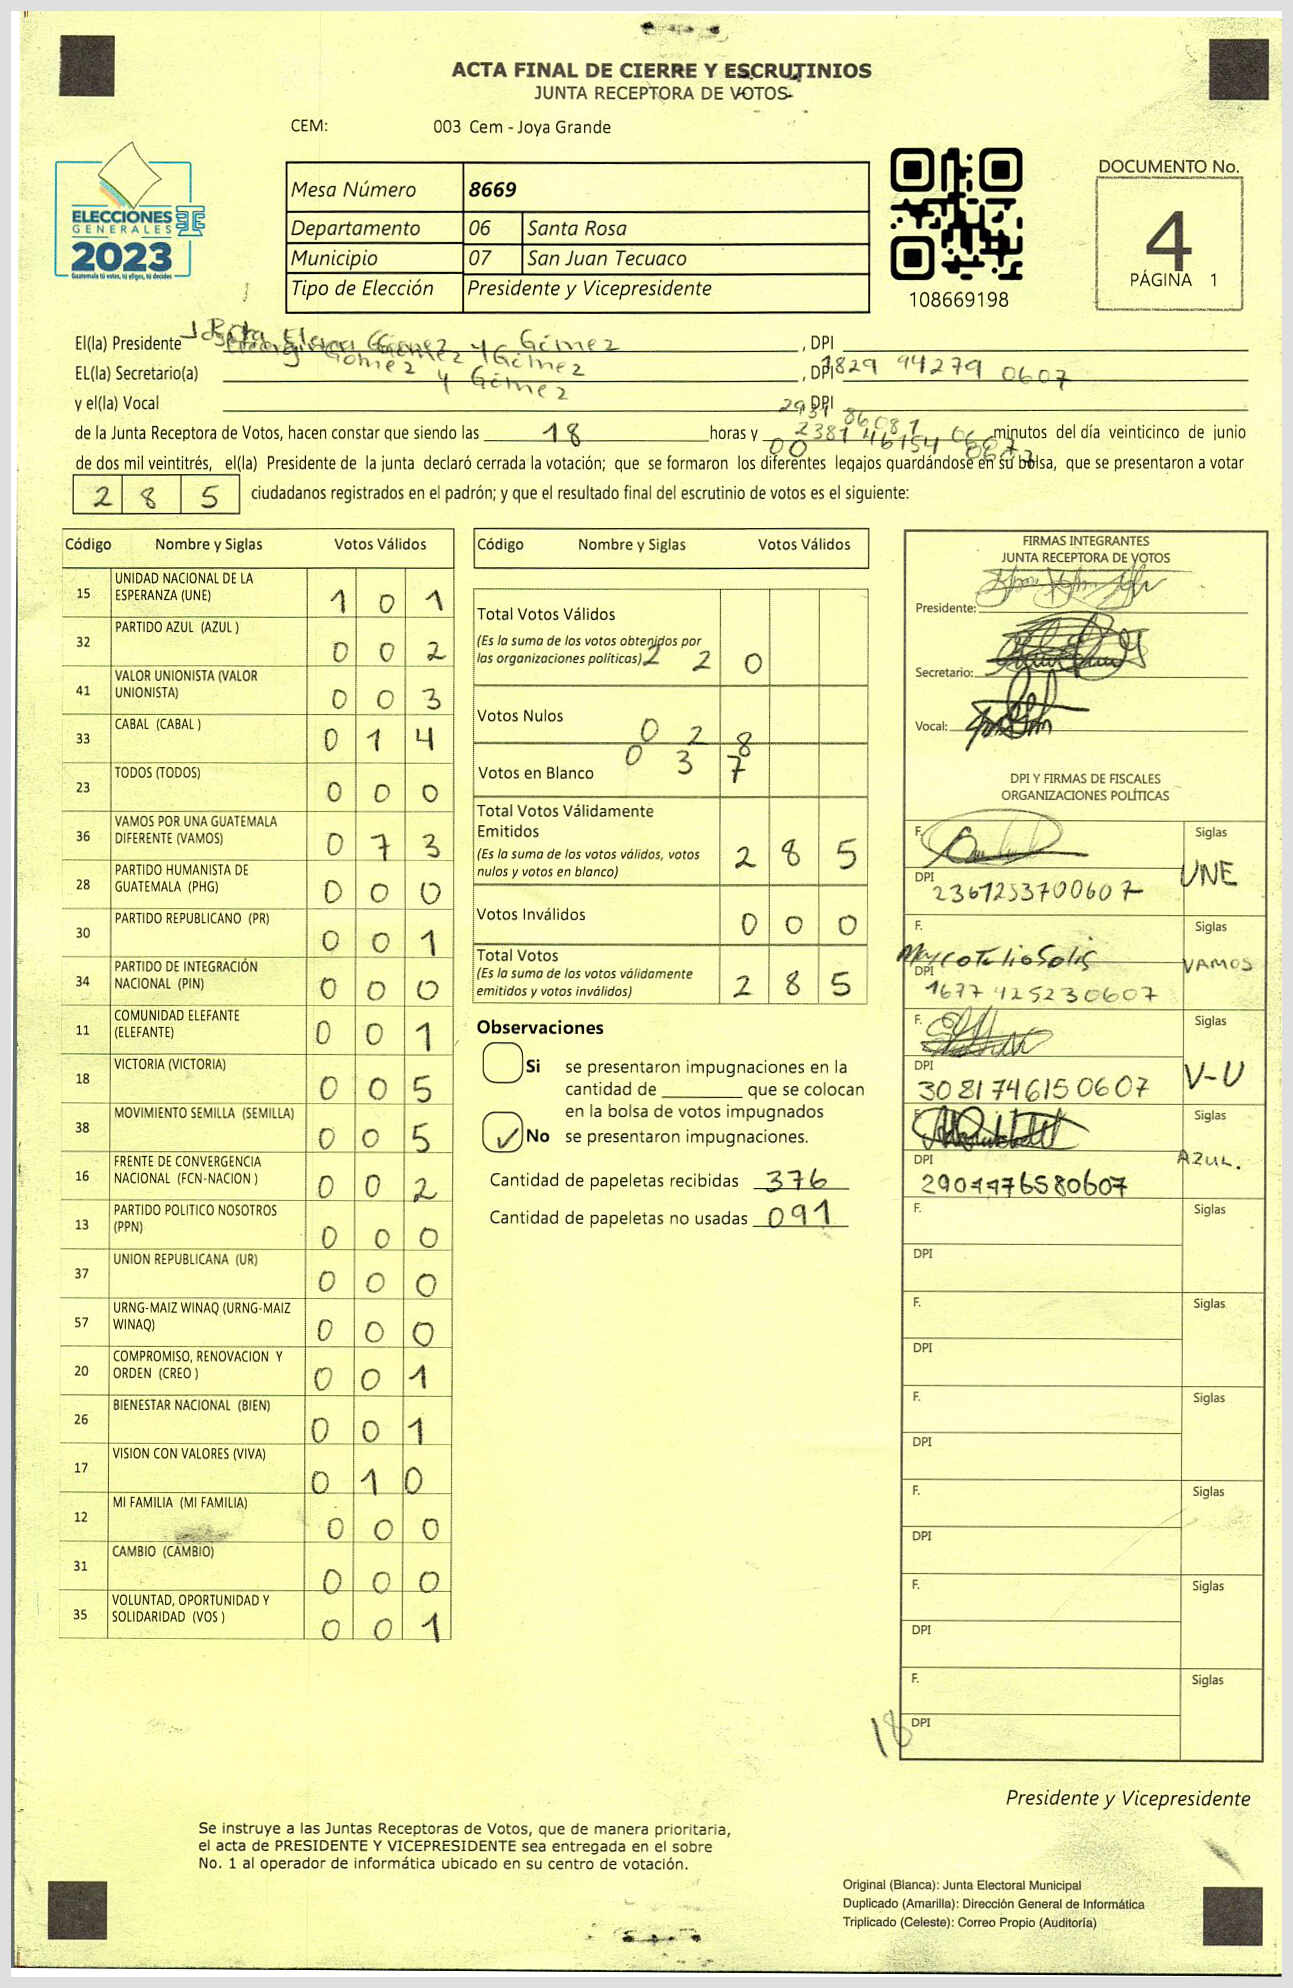 ACTA FINAL DE CIERRE Y ESCRUTINIOS
JUNTA RECEPTORA DE VOTOS
CEM: 003 Cem - Joya Grande
ELECCIONES
GENERALES
2023
Guatemala tú votas, tú eliges, tú decides
Mesa Número 8669
Departamento 06 Santa Rosa
Municipio 07 San Juan Tecuaco
Tipo de Elección Presidente y Vicepresidente
108669198
DOCUMENTO No.
4
PÁGINA 1
El(la) Presidente Elena Gómez y Gómez , DPI
EL(la) Secretario(a) Gómez y Gómez , DPI 1829 94279 0607
y el(la) Vocal , DPI
de la Junta Receptora de Votos, hacen constar que siendo las 18 horas y 00 minutos del día veinticinco de junio
de dos mil veintitrés, el(la) Presidente de la junta declaró cerrada la votación; que se formaron los diferentes legajos guardándose en su bolsa, que se presentaron a votar
285 ciudadanos registrados en el padrón; y que el resultado final del escrutinio de votos es el siguiente:
Código Nombre y Siglas Votos Válidos
15 UNIDAD NACIONAL DE LA ESPERANZA (UNE) 1 0 1
32 PARTIDO AZUL (AZUL ) 0 0 2
41 VALOR UNIONISTA (VALOR UNIONISTA) 0 0 3
33 CABAL (CABAL ) 0 1 4
23 TODOS (TODOS) 0 0 0
36 VAMOS POR UNA GUATEMALA DIFERENTE (VAMOS) 0 7 3
28 PARTIDO HUMANISTA DE GUATEMALA (PHG) 0 0 0
30 PARTIDO REPUBLICANO (PR) 0 0 1
34 PARTIDO DE INTEGRACIÓN NACIONAL (PIN) 0 0 0
11 COMUNIDAD ELEFANTE (ELEFANTE) 0 0 1
18 VICTORIA (VICTORIA) 0 0 5
38 MOVIMIENTO SEMILLA (SEMILLA) 0 0 5
16 FRENTE DE CONVERGENCIA NACIONAL (FCN-NACION ) 0 0 2
13 PARTIDO POLITICO NOSOTROS (PPN) 0 0 0
37 UNION REPUBLICANA (UR) 0 0 0
57 URNG-MAIZ WINAQ (URNG-MAIZ WINAQ) 0 0 0
20 COMPROMISO, RENOVACION Y ORDEN (CREO ) 0 0 1
26 BIENESTAR NACIONAL (BIEN) 0 0 1
17 VISION CON VALORES (VIVA) 0 1 0
12 MI FAMILIA (MI FAMILIA) 0 0 0
31 CAMBIO (CAMBIO) 0 0 0
35 VOLUNTAD, OPORTUNIDAD Y SOLIDARIDAD (VOS ) 0 0 1
Código Nombre y Siglas Votos Válidos
Total Votos Válidos
(Es la suma de los votos obtenidos por
las organizaciones políticas) 2 2 0
Votos Nulos 0 2 8
Votos en Blanco 0 3 7
Total Votos Válidamente
Emitidos
(Es la suma de los votos válidos, votos
nulos y votos en blanco) 2 8 5
Votos Inválidos 0 0 0
Total Votos
(Es la suma de los votos válidamente
emitidos y votos inválidos) 2 8 5
Observaciones
Si se presentaron impugnaciones en la
cantidad de ________ que se colocan
en la bolsa de votos impugnados
✓ No se presentaron impugnaciones.
Cantidad de papeletas recibidas 376
Cantidad de papeletas no usadas 091
FIRMAS INTEGRANTES
JUNTA RECEPTORA DE VOTOS
Presidente:
Secretario:
Vocal:
DPI Y FIRMAS DE FISCALES
ORGANIZACIONES POLÍTICAS
F. Siglas
DPI 2361253700607 UNE
F. Siglas
DPI 1677 425230607 VAMOS
F. Siglas
DPI 3081746150607 V-U
F. Siglas
DPI AZUL.
F. Siglas
DPI
F. Siglas
DPI
F. Siglas
DPI
F. Siglas
DPI
F. Siglas
DPI
F. Siglas
DPI
18
Presidente y Vicepresidente
Se instruye a las Juntas Receptoras de Votos, que de manera prioritaria,
el acta de PRESIDENTE Y VICEPRESIDENTE sea entregada en el sobre
No. 1 al operador de informática ubicado en su centro de votación.
Original (Blanca): Junta Electoral Municipal
Duplicado (Amarilla): Dirección General de Informática
Triplicado (Celeste): Correo Propio (Auditoría)